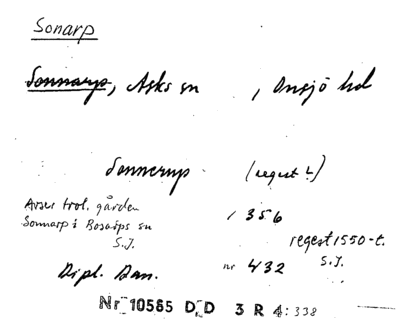 Sonarp
Sonnarp, Asks sn , Onsjö hd
Sonnerup (regest!)
Avser trol. gården
Sonnarp i Bosarps sn
S.J.
1356
regest 1550-t.
S.J.
Dipl. Dan. nr 432
Nr 10585 D D 3 R 4:338